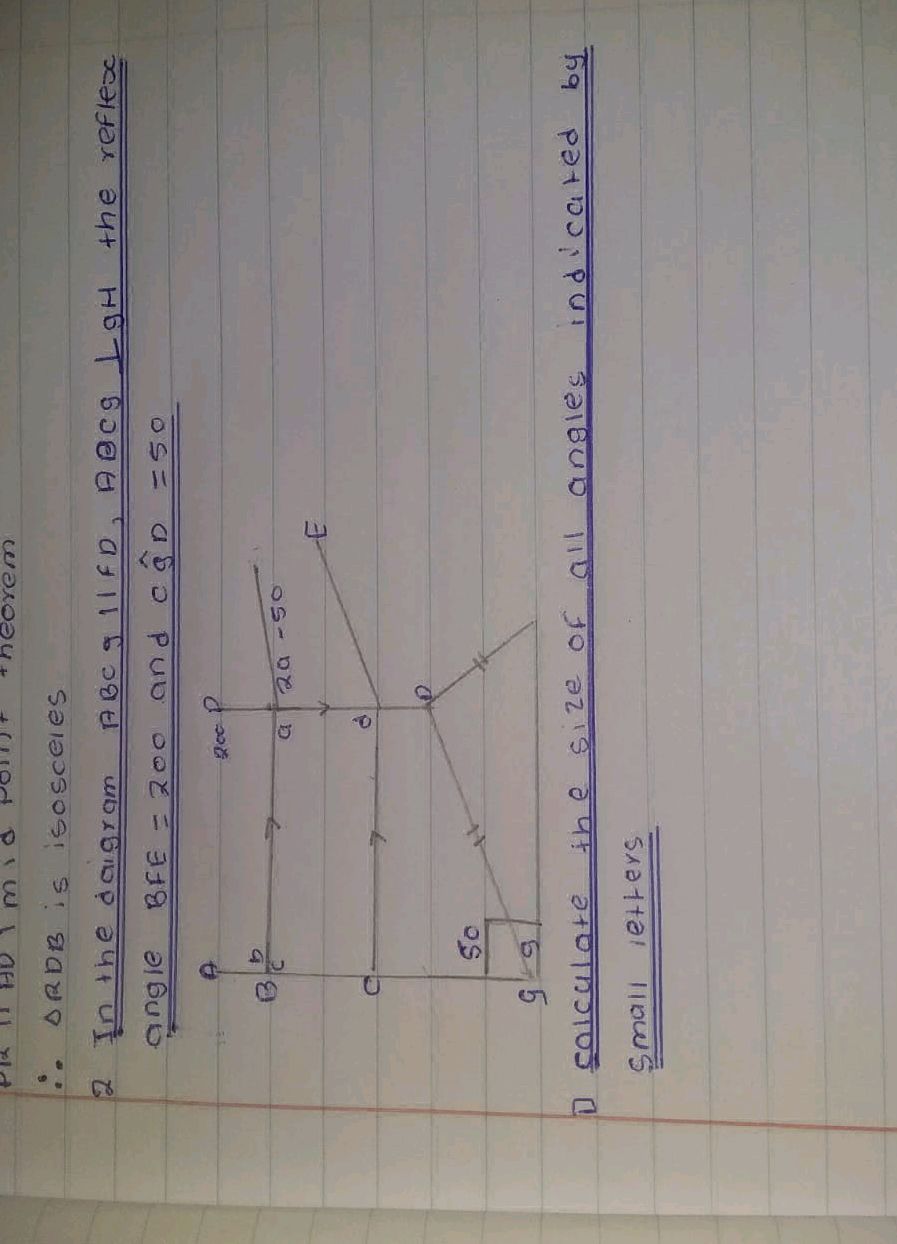 ∴ △RDB is isosceles
2 In the daigram ABCg || FD, ABCg ⊥ gH the reflex
angle BFE = 200 and cĝD = 50
A
200
B
b
c
a
2a - 50
E
C
d
D
50
g
g
calculate the size of all angles indicated by
Small letters